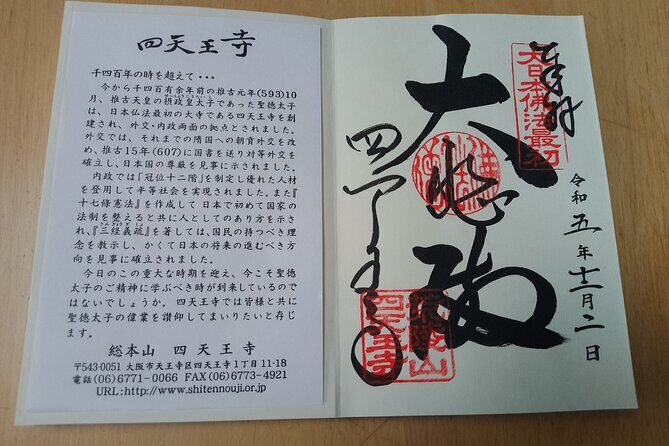 四天王寺
千四百年の時を超えて・・・
今から千四百有余年前の推古元年(593)10
月、推古天皇の摂政皇太子であった聖徳太子
は、日本仏法最初の大寺である四天王寺を創
建され、外交・内政両面の拠点とされました。
外交では、それまでの隋国への朝貢外交を改
め、推古15年(607)に国書を送り対等外交を
確立し、日本国の尊厳を見事に示されました。
内政では「冠位十二階」を制定し優れた人材
を登用して平等社会を実現されました。また『
十七條憲法』を作成して日本で初めて国家の
法制を整えると共に人としてのあり方を示さ
れ、『三経義疏』を著しては、国民の持つべき理
念を教示し、かくて日本の将来の進むべき方
向を見事に確立されました。
今日のこの重大な時期を迎え、今こそ聖徳
太子のご精神に学ぶべき時が到来しているので
はないでしょうか。四天王寺では皆様と共に
聖徳太子の偉業を讃仰してまいりたいと存じ
ます。
総本山 四天王寺
〒543-0051 大阪市天王寺区四天王寺1丁目11-18
電話(06)6771-0066 FAX(06)6773-4921
URL:http://www.shitennouji.or.jp
奉拝
大日本佛法最初
大悲殿
四天王寺
荒陵山
四天王寺
令和五年十二月二日